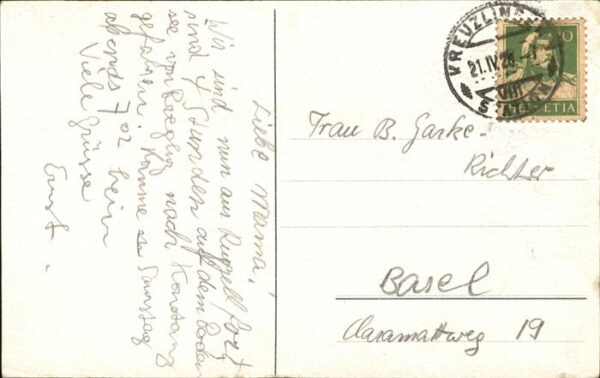 Liebe Mama!
Wir sind nun aus fort
sind 4 Stunden auf dem Boden
see von nach Konstanz
gefahren. Komme Samstag
abends 7 02 heim
Viele Grüsse
Ernst.
KREUZLINGEN
21.IV.26
10
HELVETIA
Frau B. Garke-
Richter
Basel
Claramattweg 19